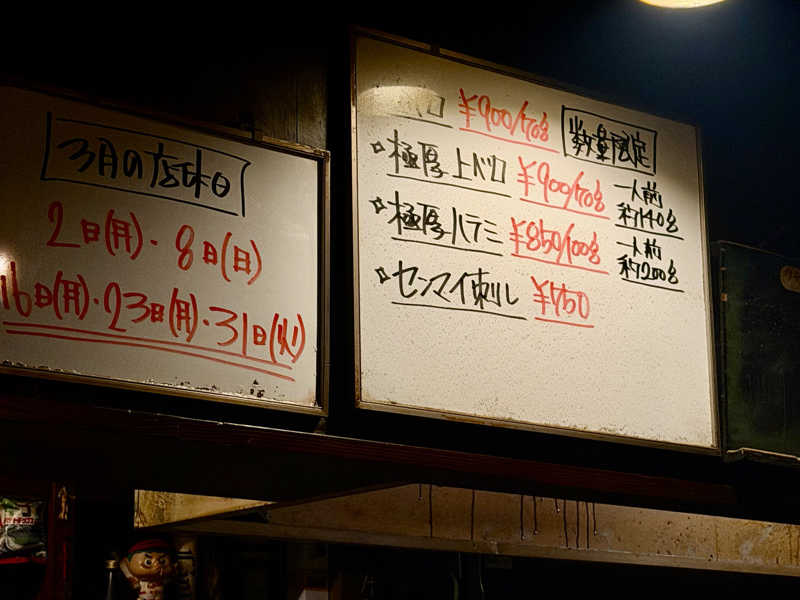 3月の店休日
2日(月)・8日(日)
16日(月)・23日(月)・31日(火)
数量限定
¥900/70g
極厚上バロ ¥900/70g 一人前 約140g
極厚ハラミ ¥850/100g 一人前 約200g
センマイ刺し ¥750